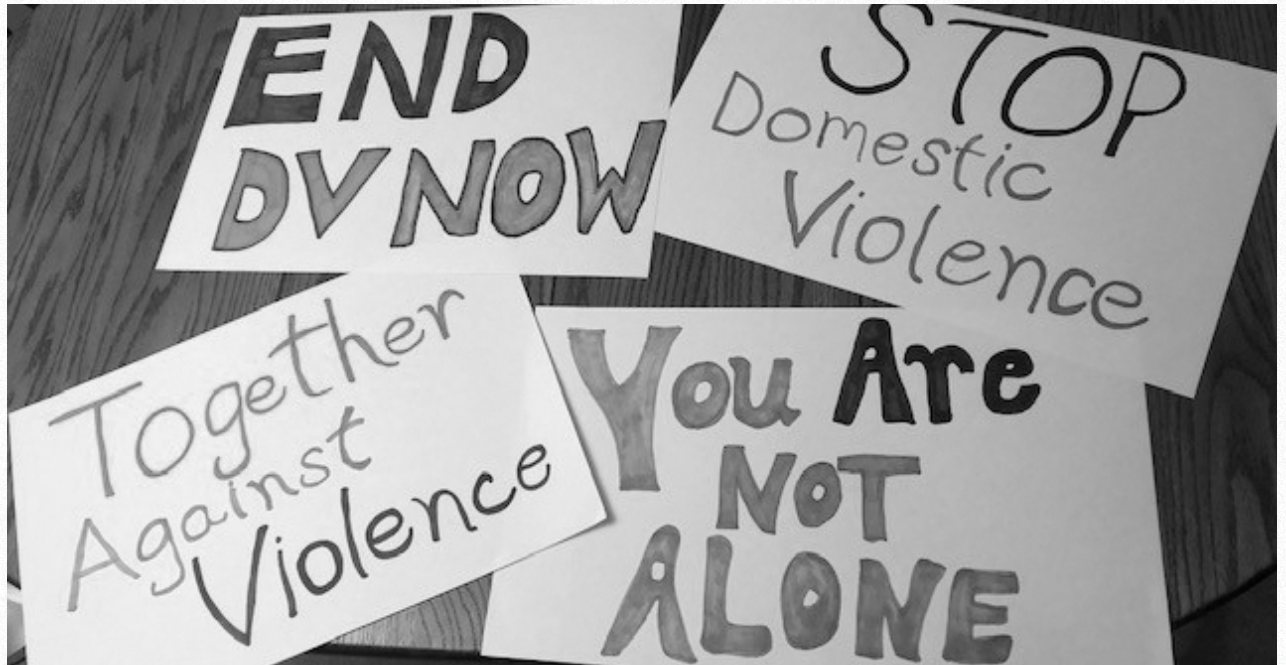 END
DV NOW
STOP
Domestic
Violence
Together
Against
Violence
You Are
NOT
ALONE